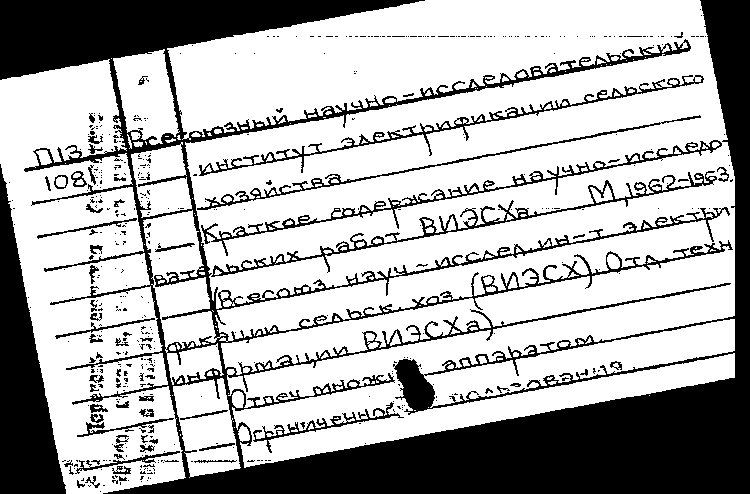 Всесоюзный научно-исследовательский
П13
108
институт электрификации сельского
хозяйства.
Краткое содержание научно-исследо-
вательских работ ВИЭСХа. М, 1962-1963.
(Всесоюз. науч.-исслед. ин-т электри-
фикации сельск. хоз. (ВИЭСХ). Отд. техн
информации ВИЭСХа).
Отпеч множ аппаратом.
Ограниченног пользования.